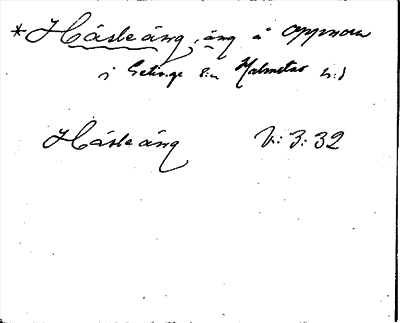 *Hásleáng, áng å oppmon
i Getinge sn Halmstad h:d
Hásleáng V: 3: 32